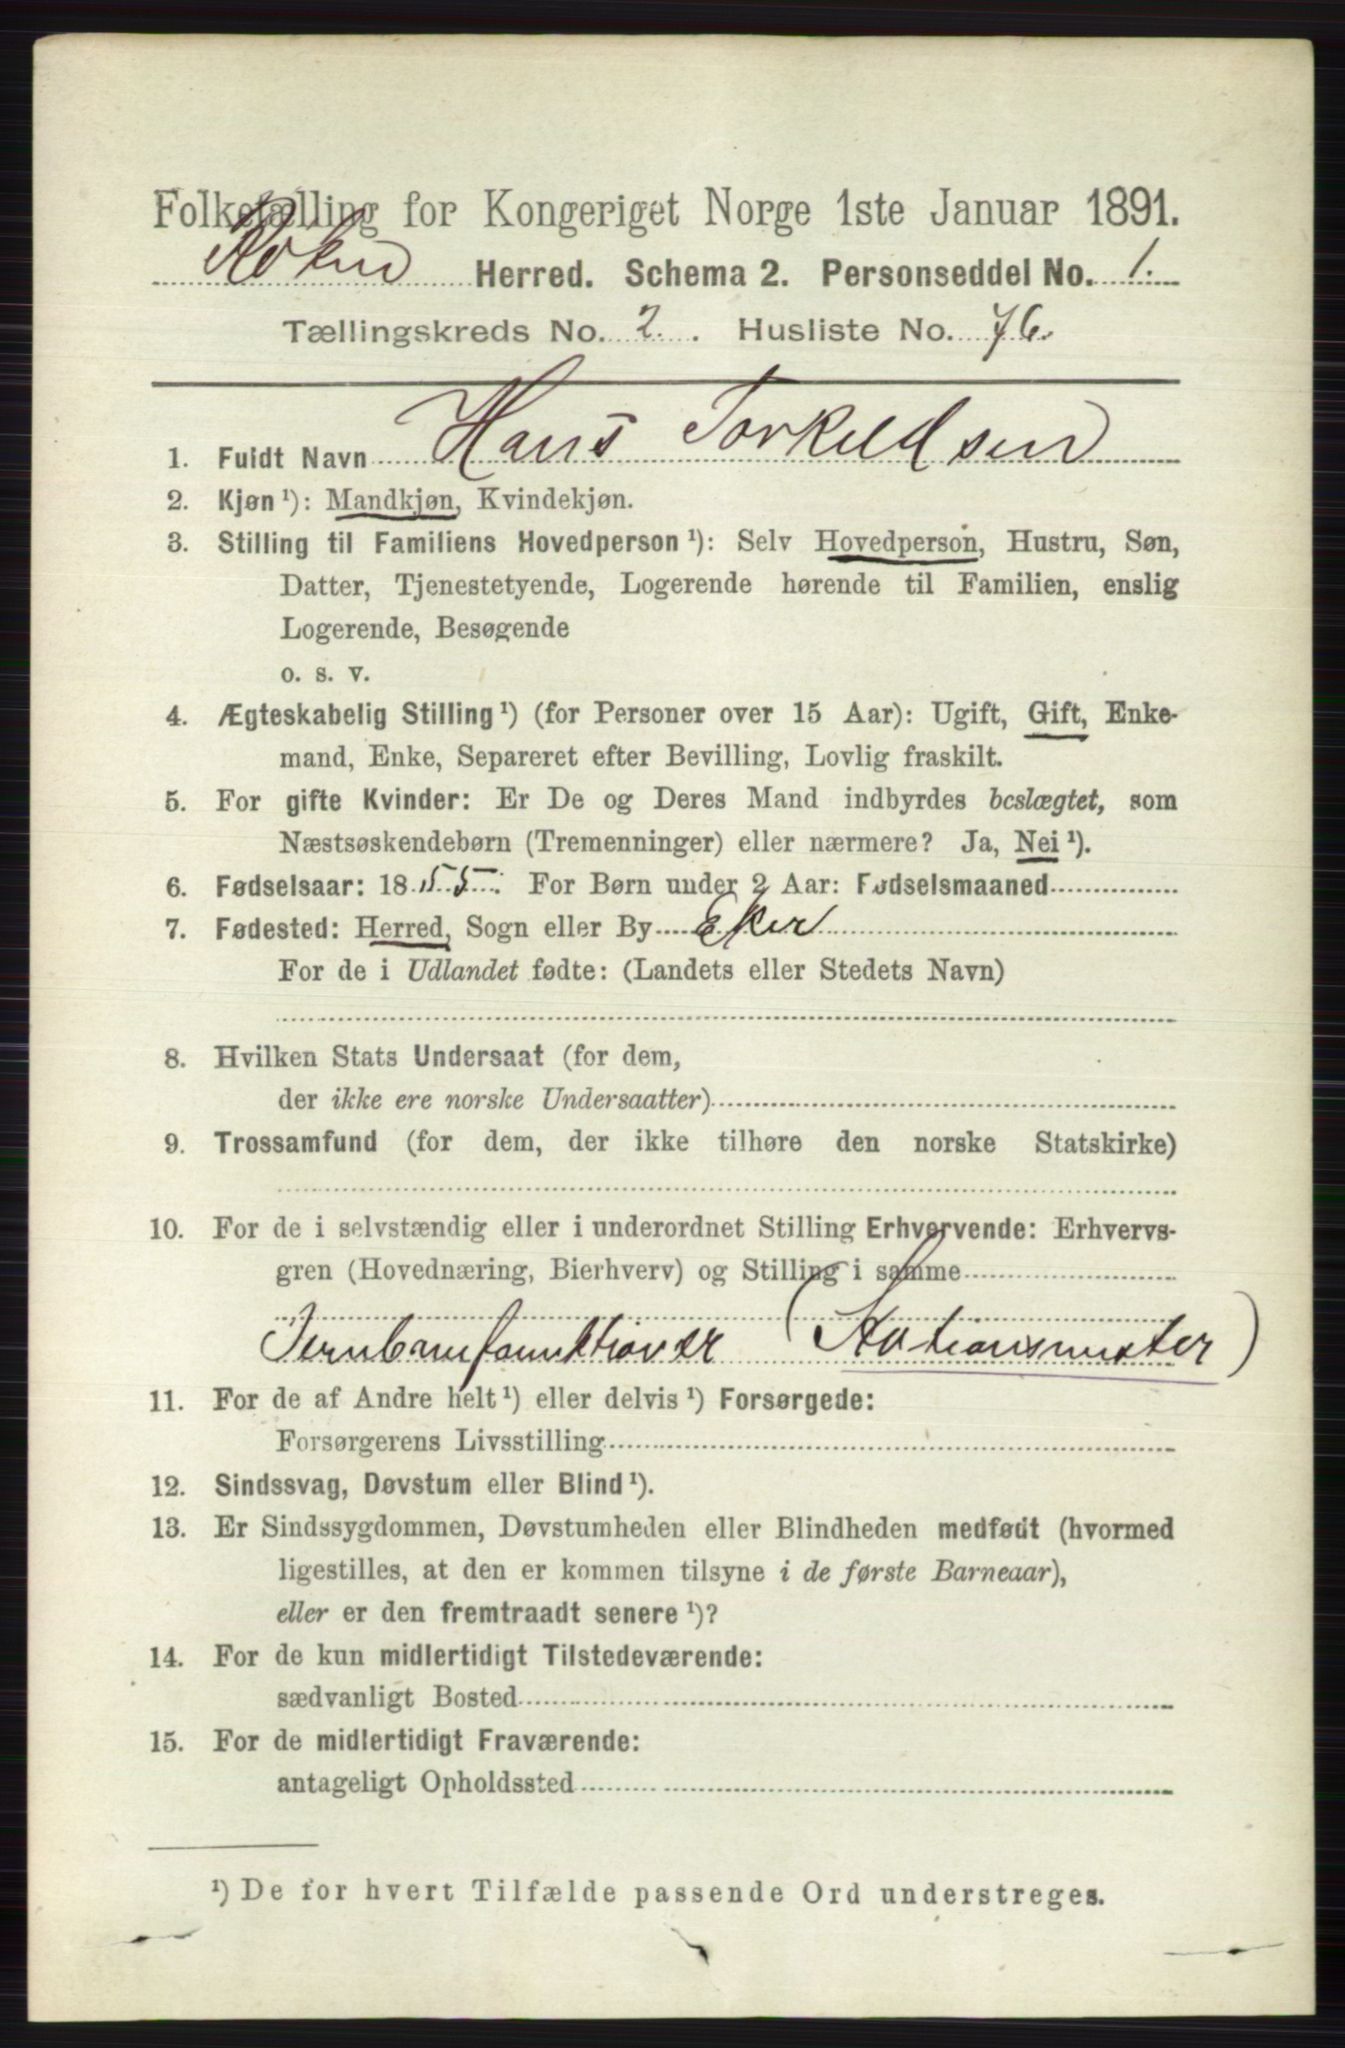 Folketælling for Kongeriget Norge 1ste Januar 1891.
Røken Herred. Schema 2. Personseddel No. 1.
Tællingskreds No. 2. Husliste No. 76.
1. Fuldt Navn Hans Torkildsen
2. Kjøn ¹): Mandkjøn, Kvindekjøn.
3. Stilling til Familiens Hovedperson ¹): Selv Hovedperson, Hustru, Søn,
Datter, Tjenestetyende, Logerende hørende til Familien, enslig
Logerende, Besøgende
o. s. v.
4. Ægteskabelig Stilling ¹) (for Personer over 15 Aar): Ugift, Gift, Enke-
mand, Enke, Separeret efter Bevilling, Lovlig fraskilt.
5. For gifte Kvinder: Er De og Deres Mand indbyrdes beslægtet, som
Næstsøskendebørn (Tremenninger) eller nærmere? Ja, Nei ¹).
6. Fødselsaar: 1855. For Børn under 2 Aar: Fødselsmaaned
7. Fødested: Herred, Sogn eller By Eker
For de i Udlandet fødte: (Landets eller Stedets Navn)
8. Hvilken Stats Undersaat (for dem,
der ikke ere norske Undersaatter)
9. Trossamfund (for dem, der ikke tilhøre den norske Statskirke)
10. For de i selvstændig eller i underordnet Stilling Erhvervende: Erhvervs-
gren (Hovednæring, Bierhverv) og Stilling i samme
Jernbanefunktionær (Stationsmester)
11. For de af Andre helt ¹) eller delvis ¹) Forsørgede:
Forsørgerens Livsstilling
12. Sindssvag, Døvstum eller Blind ¹).
13. Er Sindssygdommen, Døvstumheden eller Blindheden medfødt (hvormed
ligestilles, at den er kommen tilsyne i de første Barneaar),
eller er den fremtraadt senere ¹)?
14. For de kun midlertidigt Tilstedeværende:
sædvanligt Bosted
15. For de midlertidigt Fraværende:
antageligt Opholdssted
¹) De for hvert Tilfælde passende Ord understreges.